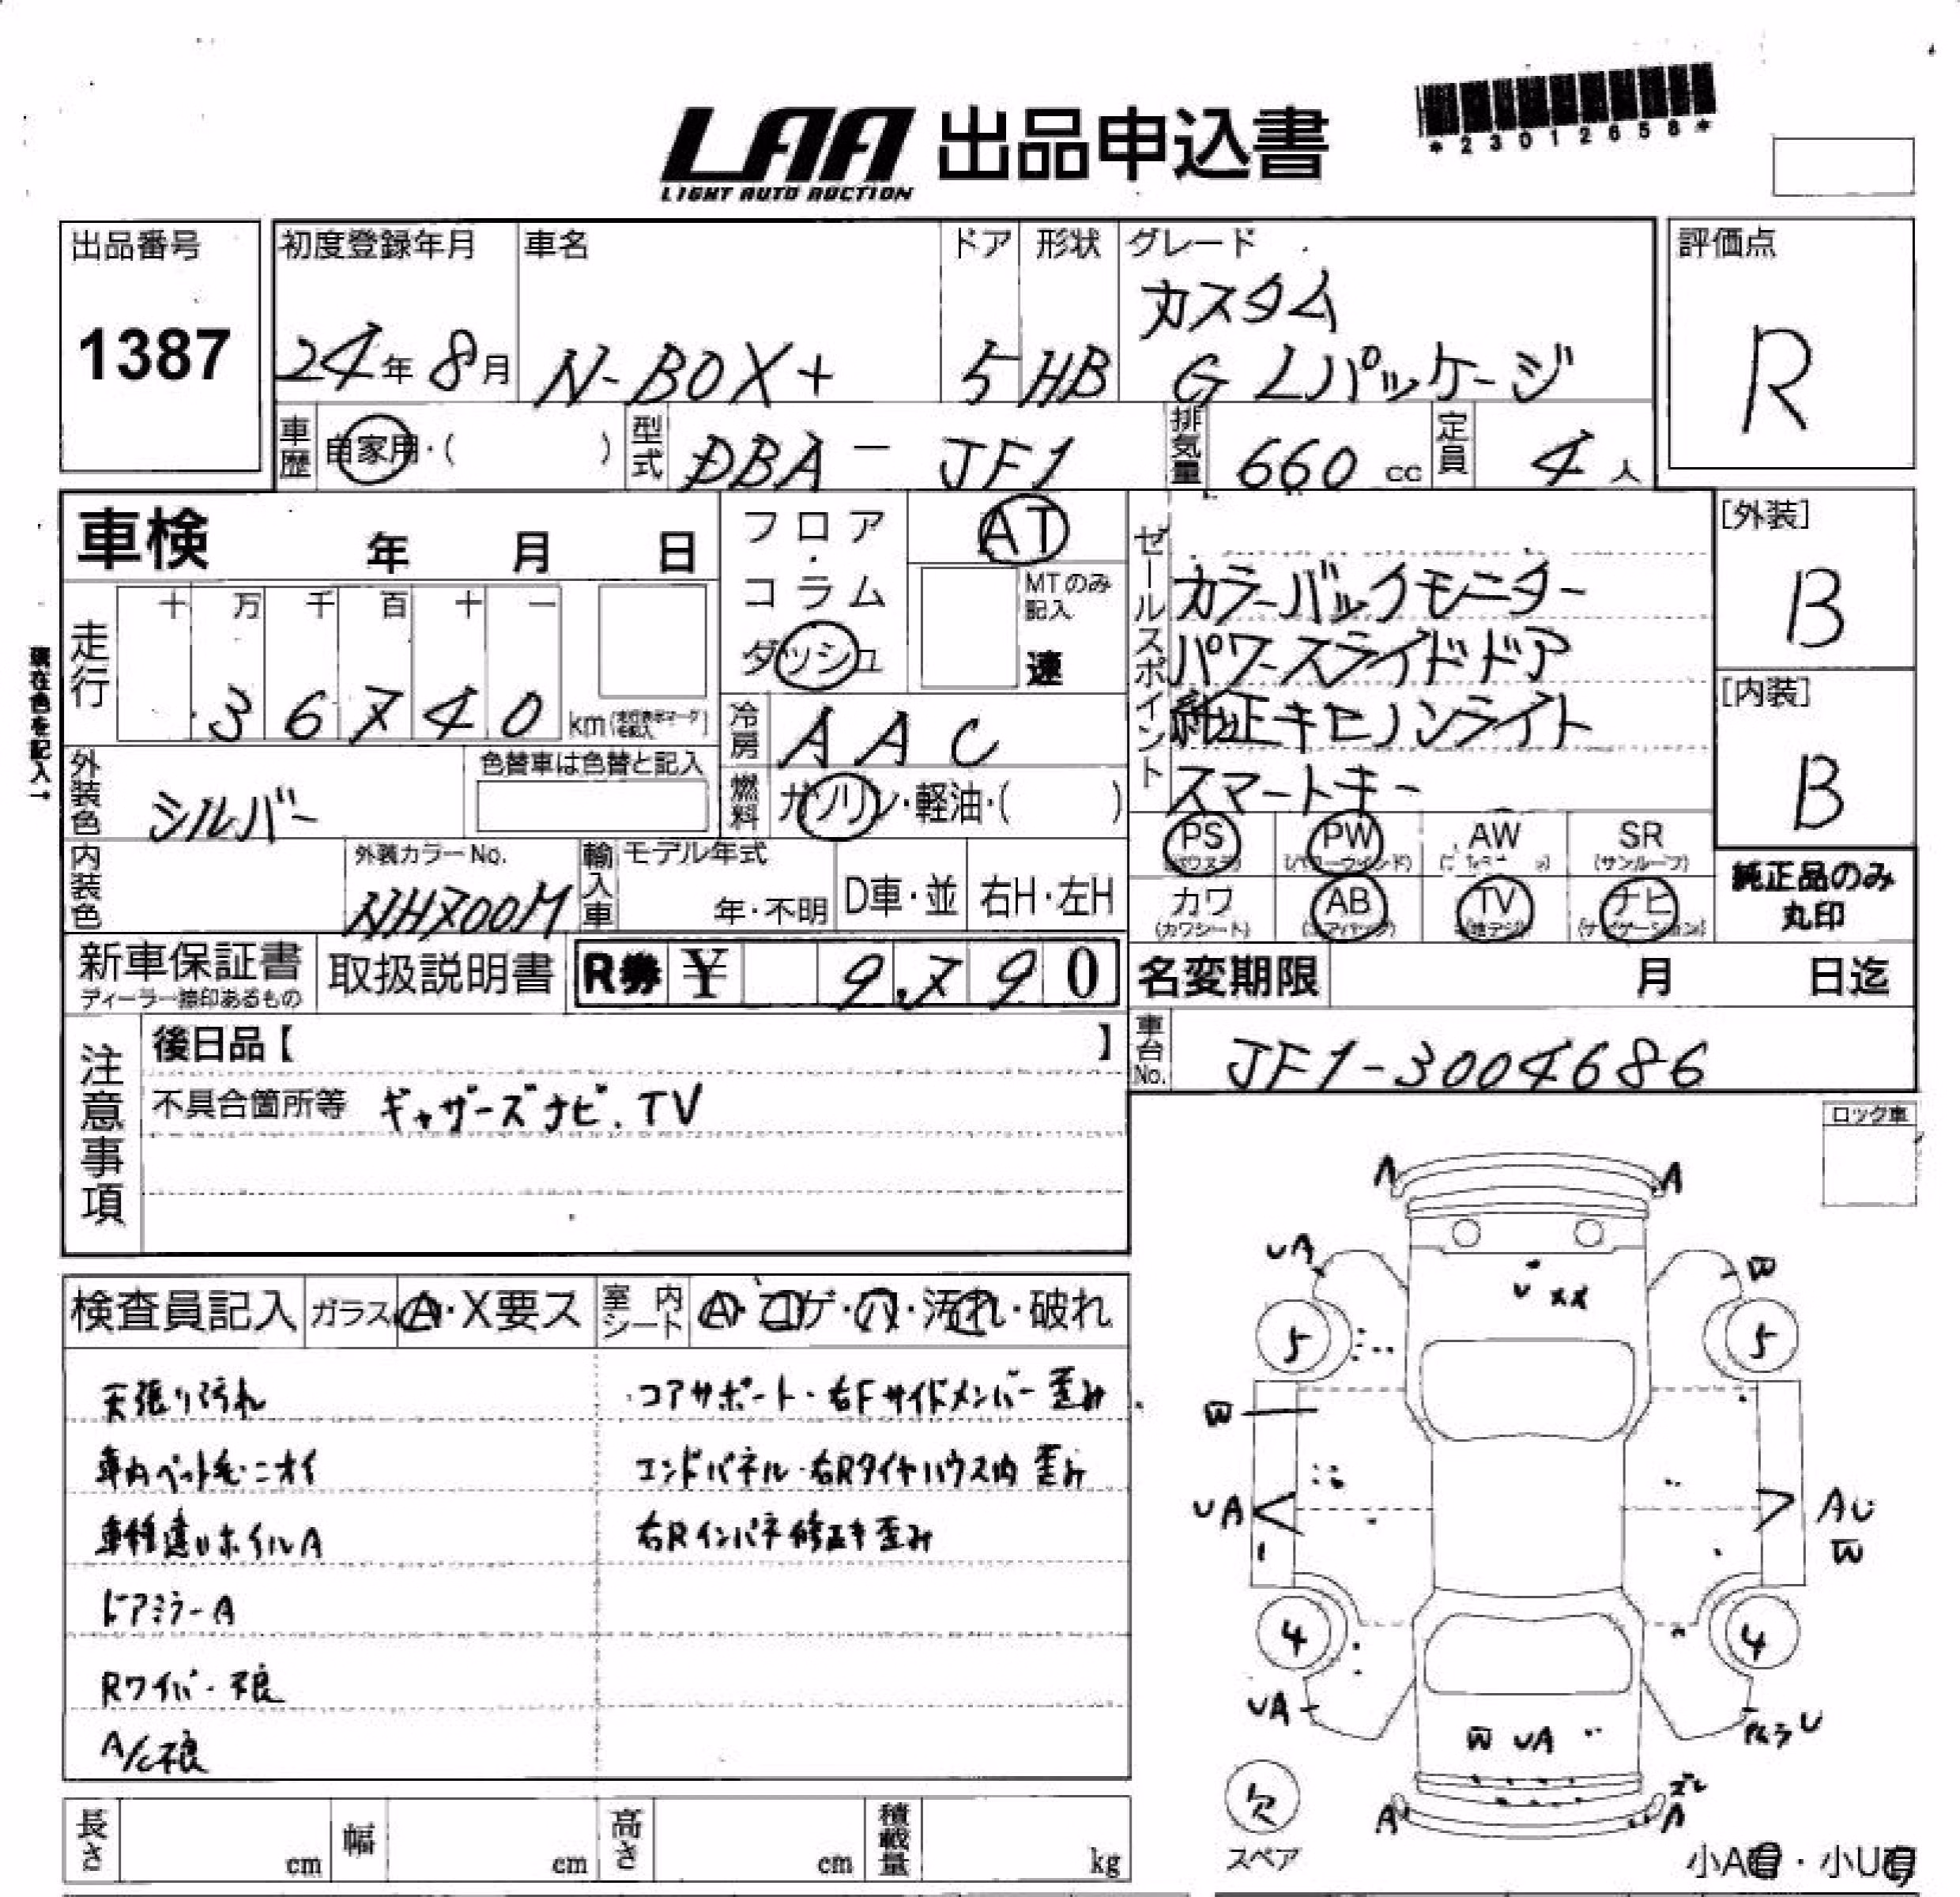 LAA 出品申込書
LIGHT AUTO AUCTION
*23012658*
出品番号
1387
初度登録年月 車名 ドア 形状 グレード
カスタム
24年 8月 N-BOX+ 5 HB G Lパッケージ
評価点
R
車歴 自家用・( ) 型式 DBA - JF1 排気量 660 cc 定員 4 人
車検 年 月 日
フロア・コラム
ダッシュ
AT
MTのみ記入
速
セールスポイント
カラーバックモニター
パワースライドドア
純正キセノンライト
スマートキー
[外装]
B
[内装]
B
走行 十 万 千 百 十 一
36740 km
現在色を記入→
冷房 AAC
外装色 シルバー
色替車は色替と記入
燃料 ガソリン・軽油・( )
PS PW AW SR
(パワステ) (パワーウインド) (サンルーフ)
カワ AB TV ナビ
(カワシート) (エアバッグ) (地デジ) (ナビゲーション)
純正品のみ
丸印
内装色
外装カラーNo.
NH700M
輸入車 モデル年式
年・不明 D車・並 右H・左H
新車保証書 取扱説明書 R券 ¥ 9,790
名変期限 月 日迄
車台No. JF1-3004686
注意事項
後日品【 】
不具合箇所等 ギャザーズナビ.TV
ロック車
検査員記入 ガラス A・X要ス 室内シート A・コゲ・穴・汚れ・破れ
天張り汚れ コアサポート・右Fサイドメンバー歪み
車内ペット毛・ニオイ エンドパネル・右Rタイヤハウス内歪み
車種違いホイルA 右Rインパネ修正キ歪み
ドアミラーA
Rワイパー不良
A/C不良
A A
UA W
U XX
5 5
W
UA AU
W
4 4
UA
W UA
A A
欠
スペア
小A有・小U有
長さ cm 幅 cm 高さ cm 積載量 kg